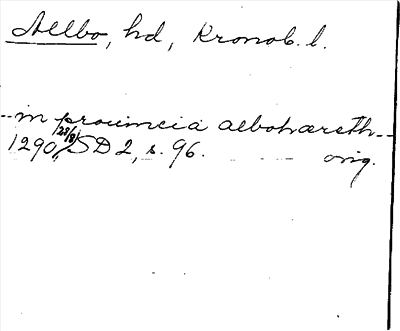 Allbo, hd, Kronob. l.
-- in prouincia albohæreth --
1290 28/8, SD 2, s. 96. orig.